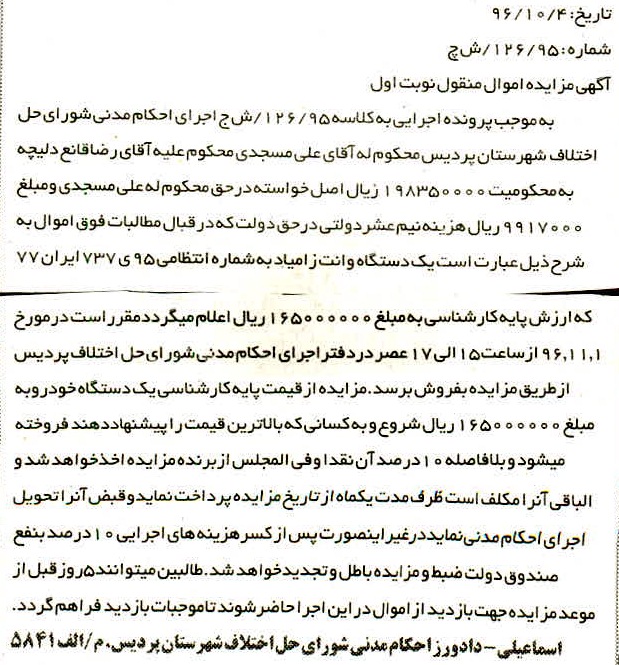 تاریخ: ۹۶/۱۰/۴
شماره: ۱۲۶/۹۵/ش چ
آگهی مزایده اموال منقول نوبت اول
به موجب پرونده اجرایی به کلاسه ۱۲۶/۹۵/ش ج اجرای احکام مدنی شورای حل
اختلاف شهرستان پردیس محکوم له آقای علی مسجدی محکوم علیه آقای رضا قانع دلیچه
به محکومیت ۱۹۸۳۵۰۰۰۰ ریال اصل خواسته در حق محکوم له علی مسجدی و مبلغ
۹۹۱۷۰۰۰ ریال هزینه نیم عشر دولتی در حق دولت که در قبال مطالبات فوق اموال به
شرح ذیل عبارت است یک دستگاه وانت زامیاد به شماره انتظامی ۹۵ ی ۷۳۷ ایران ۷۷
که ارزش پایه کارشناسی به مبلغ ۱۶۵۰۰۰۰۰۰ ریال اعلام میگردد مقرر است در مورخ
۹۶,۱۱,۱ از ساعت ۱۵ الی ۱۷ عصر در دفتر اجرای احکام مدنی شورای حل اختلاف پردیس
از طریق مزایده بفروش برسد. مزایده از قیمت پایه کارشناسی یک دستگاه خودرو به
مبلغ ۱۶۵۰۰۰۰۰۰ ریال شروع و به کسانی که بالاترین قیمت را پیشنهاد دهند فروخته
میشود و بلافاصله ۱۰ درصد آن نقدا و فی المجلس از برنده مزایده اخذ خواهد شد و
الباقی آنرا مکلف است ظرف مدت یکماه از تاریخ مزایده پرداخت نماید و قبض آنرا تحویل
اجرای احکام مدنی نماید در غیر اینصورت پس از کسر هزینه های اجرایی ۱۰ درصد بنفع
صندوق دولت ضبط و مزایده باطل و تجدید خواهد شد. طالبین میتوانند ۵ روز قبل از
موعد مزایده جهت بازدید از اموال در این اجرا حاضر شوند تا موجبات بازدید فراهم گردد.
اسماعیلی – دادورز احکام مدنی شورای حل اختلاف شهرستان پردیس. م/الف ۵۸۴۱